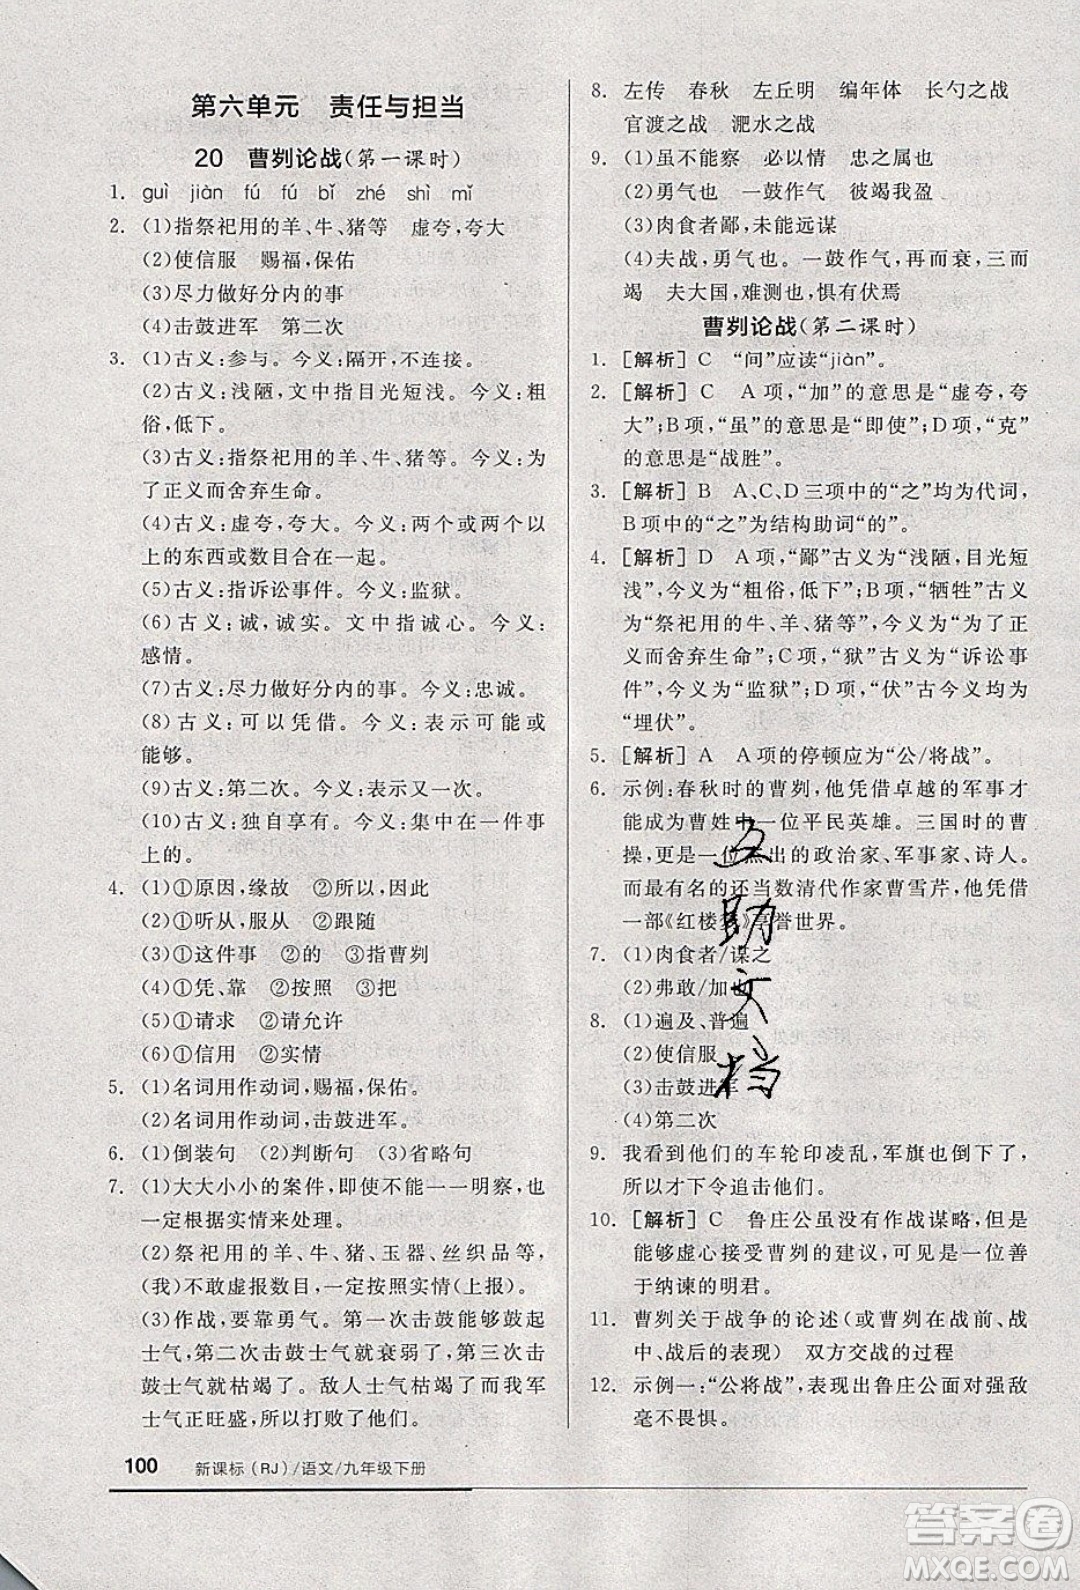 第六单元　责任与担当
20　曹刿论战(第一课时)
1. guì　jiàn　fú　fú　bǐ　zhé　shì　mǐ
2. (1)指祭祀用的羊、牛、猪等　虚夸,夸大
(2)使信服　赐福,保佑
(3)尽力做好分内的事
(4)击鼓进军　第二次
3. (1)古义:参与。今义:隔开,不连接。
(2)古义:浅陋,文中指目光短浅。今义:粗
俗,低下。
(3)古义:指祭祀用的羊、牛、猪等。今义:为
了正义而舍弃生命。
(4)古义:虚夸,夸大。今义:两个或两个以
上的东西或数目合在一起。
(5)古义:指诉讼事件。今义:监狱。
(6)古义:诚,诚实。文中指诚心。今义:
感情。
(7)古义:尽力做好分内的事。今义:忠诚。
(8)古义:可以凭借。今义:表示可能或
能够。
(9)古义:第二次。今义:表示又一次。
(10)古义:独自享有。今义:集中在一件事
上的。
4. (1)①原因,缘故　②所以,因此
(2)①听从,服从　②跟随
(3)①这件事　②的　③指曹刿
(4)①凭、靠　②按照　③把
(5)①请求　②请允许
(6)①信用　②实情
5. (1)名词用作动词,赐福,保佑。
(2)名词用作动词,击鼓进军。
6. (1)倒装句　(2)判断句　(3)省略句
7. (1)大大小小的案件,即使不能一一明察,也
一定根据实情来处理。
(2)祭祀用的羊、牛、猪、玉器、丝织品等,
(我)不敢虚报数目,一定按照实情(上报)。
(3)作战,要靠勇气。第一次击鼓能鼓起
士气,第二次击鼓士气就低落了,第三次
击鼓士气就枯竭了。敌人士气枯竭了而我军
士气正旺盛,所以打败了他们。
8. 左传　春秋　左丘明　编年体　长勺之战
官渡之战　淝水之战
9. (1)虽不能察　必以情　忠之属也
(2)勇气也　一鼓作气　彼竭我盈
(3)肉食者鄙,未能远谋
(4)夫战,勇气也。一鼓作气,再而衰,三而
竭　夫大国,难测也,惧有伏焉
曹刿论战(第二课时)
1. [解析] C　“间”应读“jiàn”。
2. [解析] C　A项,“加”的意思是“虚夸、夸
大”;B项,“虽”的意思是“即使”;D项,“克”
的意思是“战胜”。
3. [解析] B　A、C、D三项中的“之”均为代词,
B项中的“之”为结构助词“的”。
4. [解析] D　A项,“鄙”古义为“浅陋,目光短
浅”,今义为“粗俗,低下”;B项,“牺牲”古义
为“祭祀用的牛、羊、猪等”,今义为“为了正
义而舍弃生命”;C项,“狱”古义为“诉讼事
件”,今义为“监狱”;D项,“伏”古今义均为
“埋伏”。
5. [解析] A　A项的停顿应为“公/将战”。
6. 示例:春秋时的曹刿,他凭借卓越的军事才
能成为曹姓中一位平民英雄。三国时的曹
操,更是一位杰出的政治家、军事家、诗人。
而最有名的还当数清代作家曹雪芹,他凭借
一部《红楼梦》享誉世界。
7. (1)肉食者/谋之
(2)弗敢/加也
8. (1)遍及、普遍
(2)使信服
(3)击鼓进军
(4)第二次
9. 我看到他们的车轮印凌乱,军旗也倒下了,
所以才下令追击他们。
10. [解析] C　鲁庄公虽没有作战谋略,但是
能够虚心接受曹刿的建议,可见是一位善
于纳谏的明君。
11. 曹刿关于战争的论述(或曹刿在战前、战
中、战后的表现)　双方交战的过程
12. 示例一:“公将战”,表现出鲁庄公面对强敌
毫不畏惧。
互助文档
100　新课标(RJ)/语文/九年级下册
答案圈
MXQE.COM